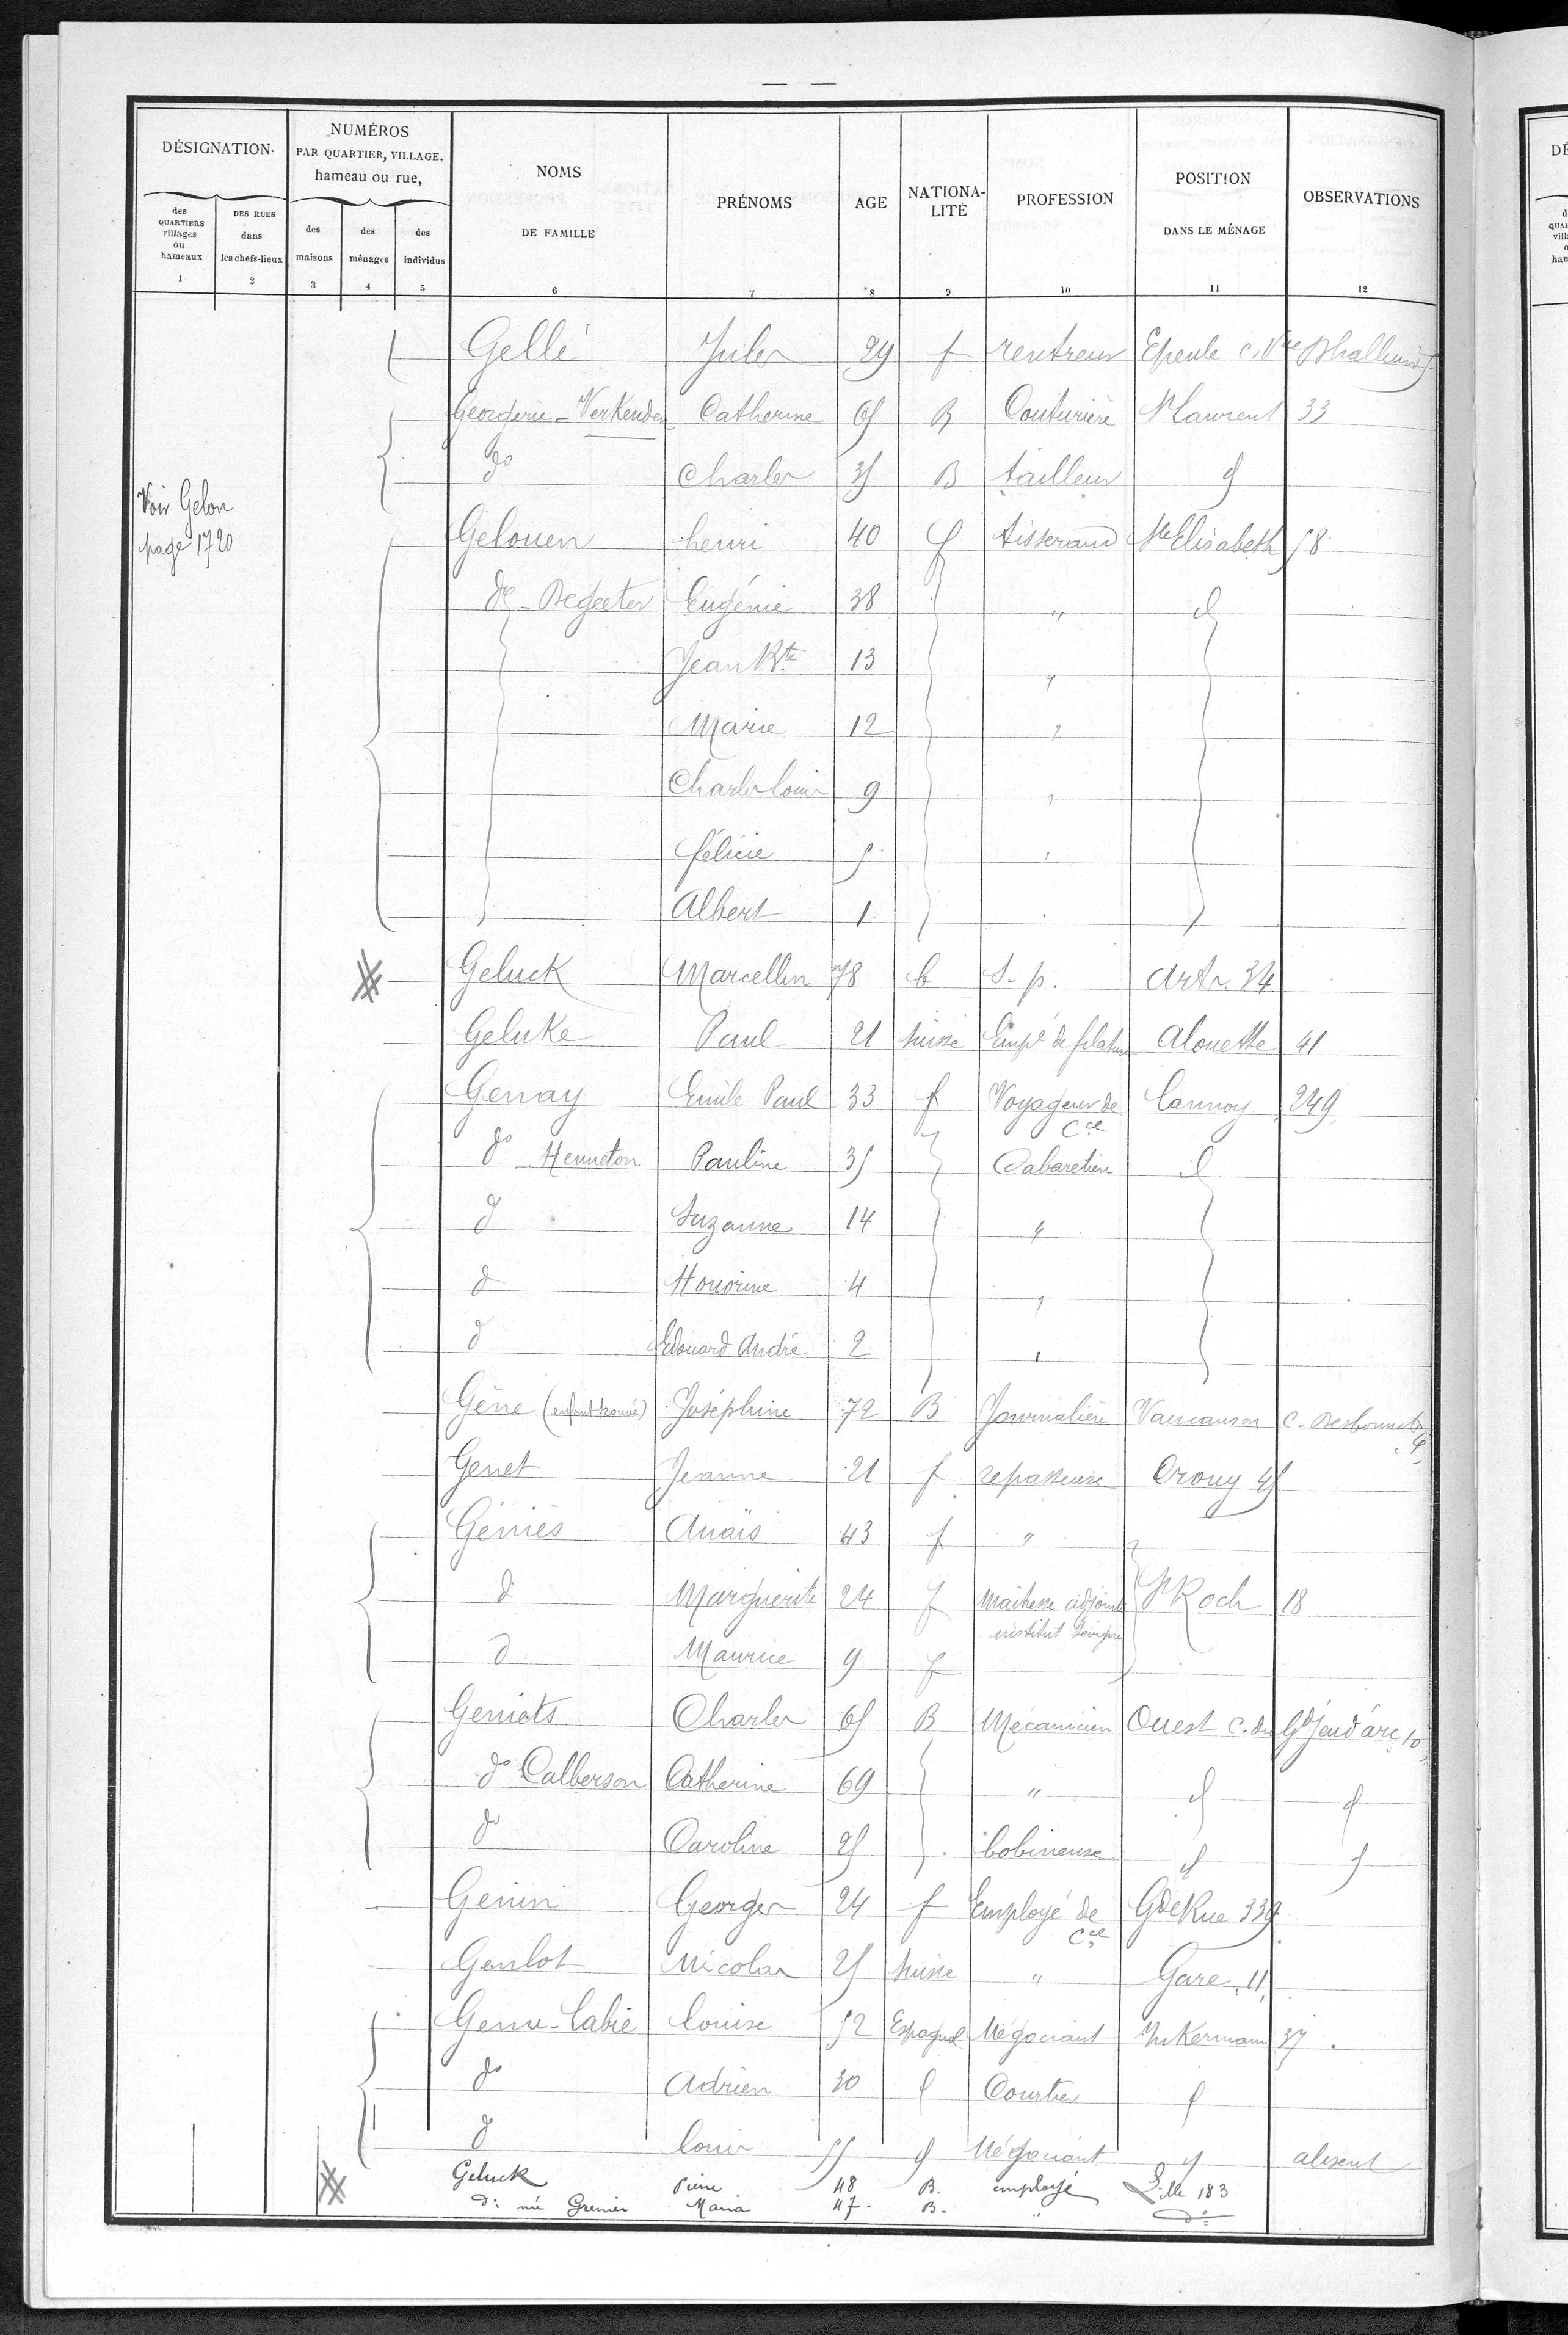 — —
DÉSIGNATION
NUMÉROS
PAR QUARTIER, VILLAGE.
hameau ou rue,
NOMS
DE FAMILLE
PRÉNOMS
AGE
NATIONA-
LITÉ
PROFESSION
POSITION
DANS LE MÉNAGE
OBSERVATIONS
des
QUARTIERS
villages
ou
hameaux
DES RUES
dans
les chefs-lieux
des
maisons
des
ménages
des
individus
1 2 3 4 5 6 7 8 9 10 11 12
Gellé Jules 29 f rentreur Epeule c. Vve
Georgerie - Verkenden Catherine 65 B Couturière St Laurent 33
do Charles 35 B tailleur d
Voir Gelon
page 1720
Gelouen henri 40 f tisserand Ste Elisabeth 58
do - Degeeter Eugénie 38 " d
Jean Bte 13 "
Marie 12 "
Charles louis 9 "
félicie 5 "
Albert 1
Geluck Marcellin 78 b S. p. Arts. 34
Geluke Paul 21 suisse Empé de filature Alouette 41
Genay Emile Paul 33 f Voyageur de Cce Lannoy 249
do - Henneton Pauline 35 Cabaretière d
d Suzanne 14 "
d Honorine 4 "
d Edouard André 2 "
Gène (enfant trouvé) Joséphine 72 B Journalière Vaucanson c. Desbonnets 4
Genet Jeanne 21 f repasseuse Crouy 45
Géniès Anaïs 43 f "
d Marguerite 24 f Maitresse adjointe institut Sévigné St Roch 18
d Maurice 9 f
Geniets Charles 65 B Mécanicien Ouest c. du Gd Jend'arc 10
do Calberson Catherine 69 " d d
do Caroline 25 bobineuse d d
Genin Georges 24 f Employé de Cce Gde Rue 339
Genlot Nicolas 25 suisse " Gare 11
Genu-Labie louise 52 Espagnol Négociant Inkermann 37
do Adrien 30 d Courtier d
d louis 55 d Négociant d absent
Geluck Pierre 48 B. employé Lille 183
do né Grenier Maria 47 B. " do